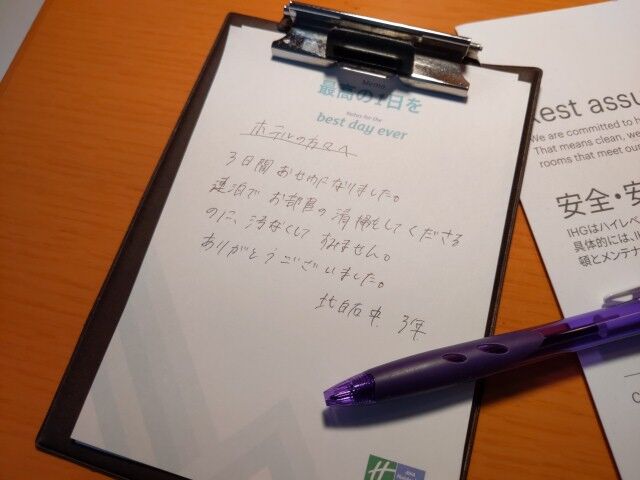 Memo
最高の1日を
Notes for the
best day ever
ホテルの方々へ
3日間おせわになりました。
連泊でお部屋の清掃をしてくださる
のに、汚なくしてすみません。
ありがとうございました。
北白石中 3年
Rest assu
We are committed to h
That means clean, we
rooms that meet our
安全・安
IHGはハイレベ
具体的には、I
頓とメンテナ